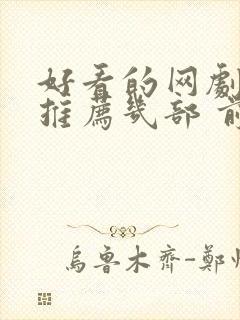 好看的网劇
推薦幾部 前
烏魯木齊-鄭州